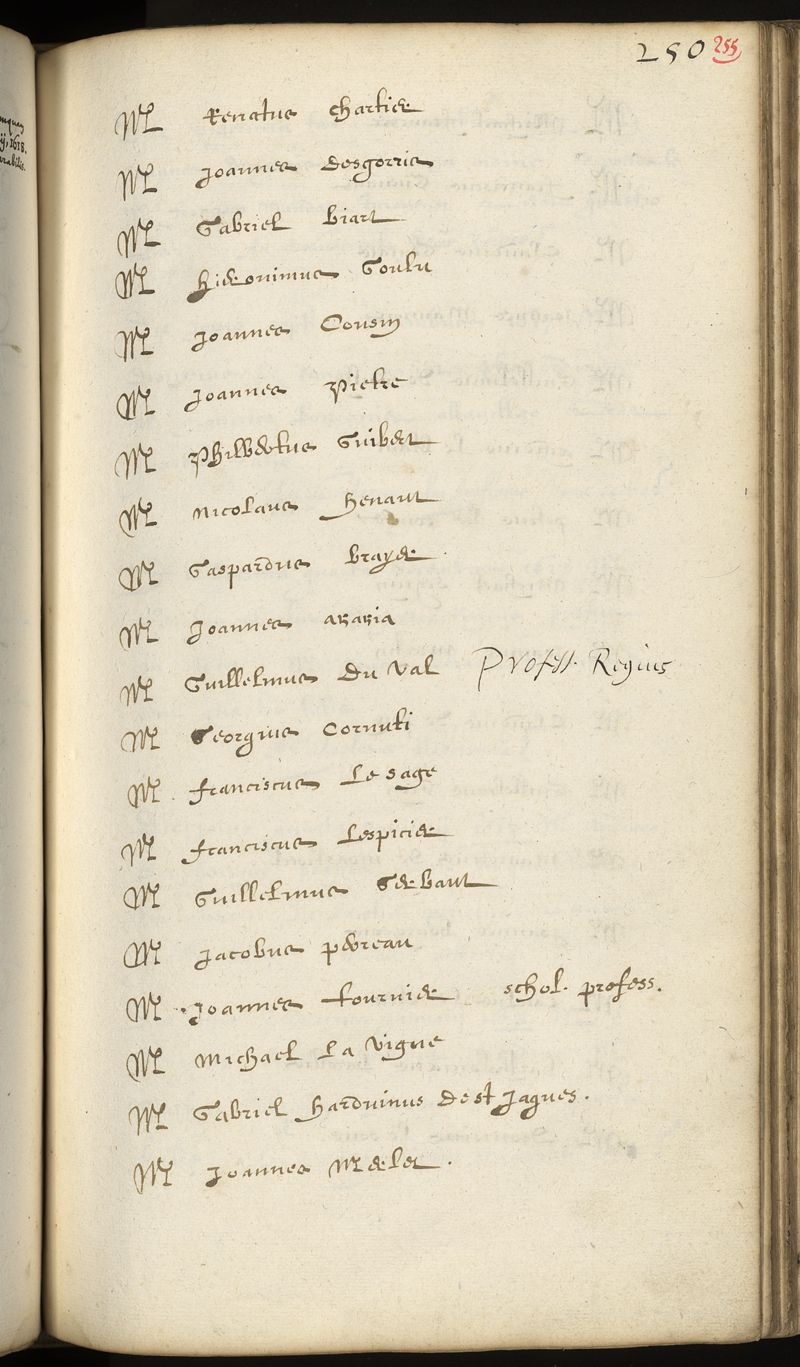 250 255
M Renatus Chartier
M Joannes Desgorris
M Gabriel Biart
M Hieronimus Goulu
M Joannes Cousin
M Joannes Pietre
M Philbertus Guibert
M Nicolaus Henaut
M Gaspardus Brayer
M Joannes Akakia
M Guillelmus Du Val Profess. Regius
M Georgius Cornuti
M Franciscus Le Sage
M Franciscus Lespicier
M Guillelmus Gerbaut
M Jacobus Perreau
M Joannes Fournier schol. profess.
M Michael La Vigne
M Gabriel Harduinus De st Jaques.
M Joannes Merlet.